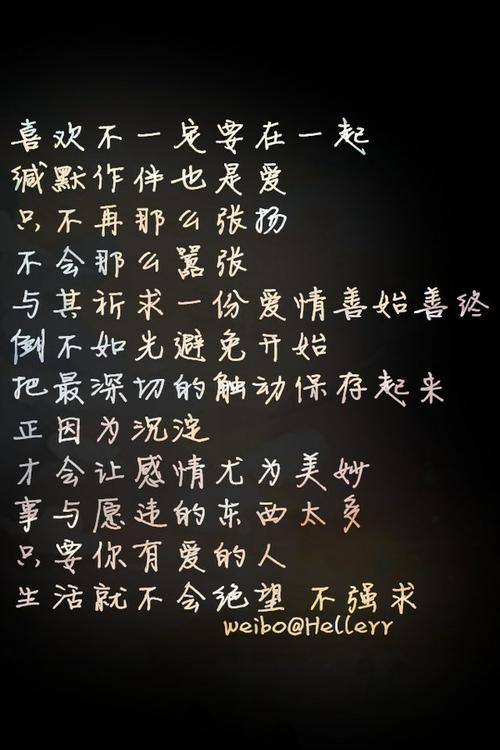 喜欢不一定要在一起
缄默作伴也是爱
只不再那么张扬
不会那么嚣张
与其祈求一份爱情善始善终
倒不如先避免开始
把最深切的触动保存起来
正因为沉淀
才会让感情尤为美妙
事与愿违的东西太多
只要你有爱的人
生活就不会绝望 不强求
weibo@Hellerr